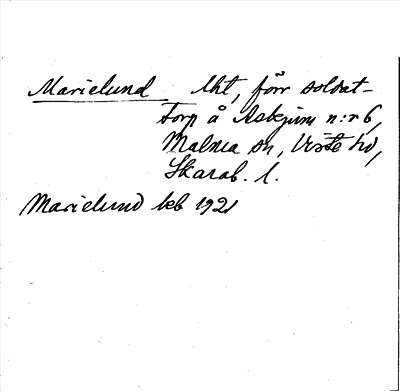 Marielund lht, förr soldat-
torp å Askjum n:r 6,
Malma sn, Viste hd,
Skarab. l.
Marielund leb 1921